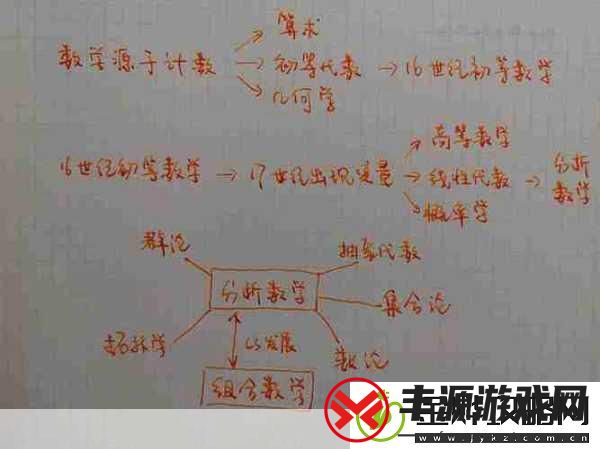 算术
数学源于计数 → 初等代数 → 16世纪初等数学
几何学
高等数学
16世纪初等数学 → 17世纪出现变量 → 线性代数 → 分析数学
概率学
群论
抽象代数
分析数学
集合论
拓扑学
CS发展
数论
组合数学
丰源游戏网
www.jykz.com.cn